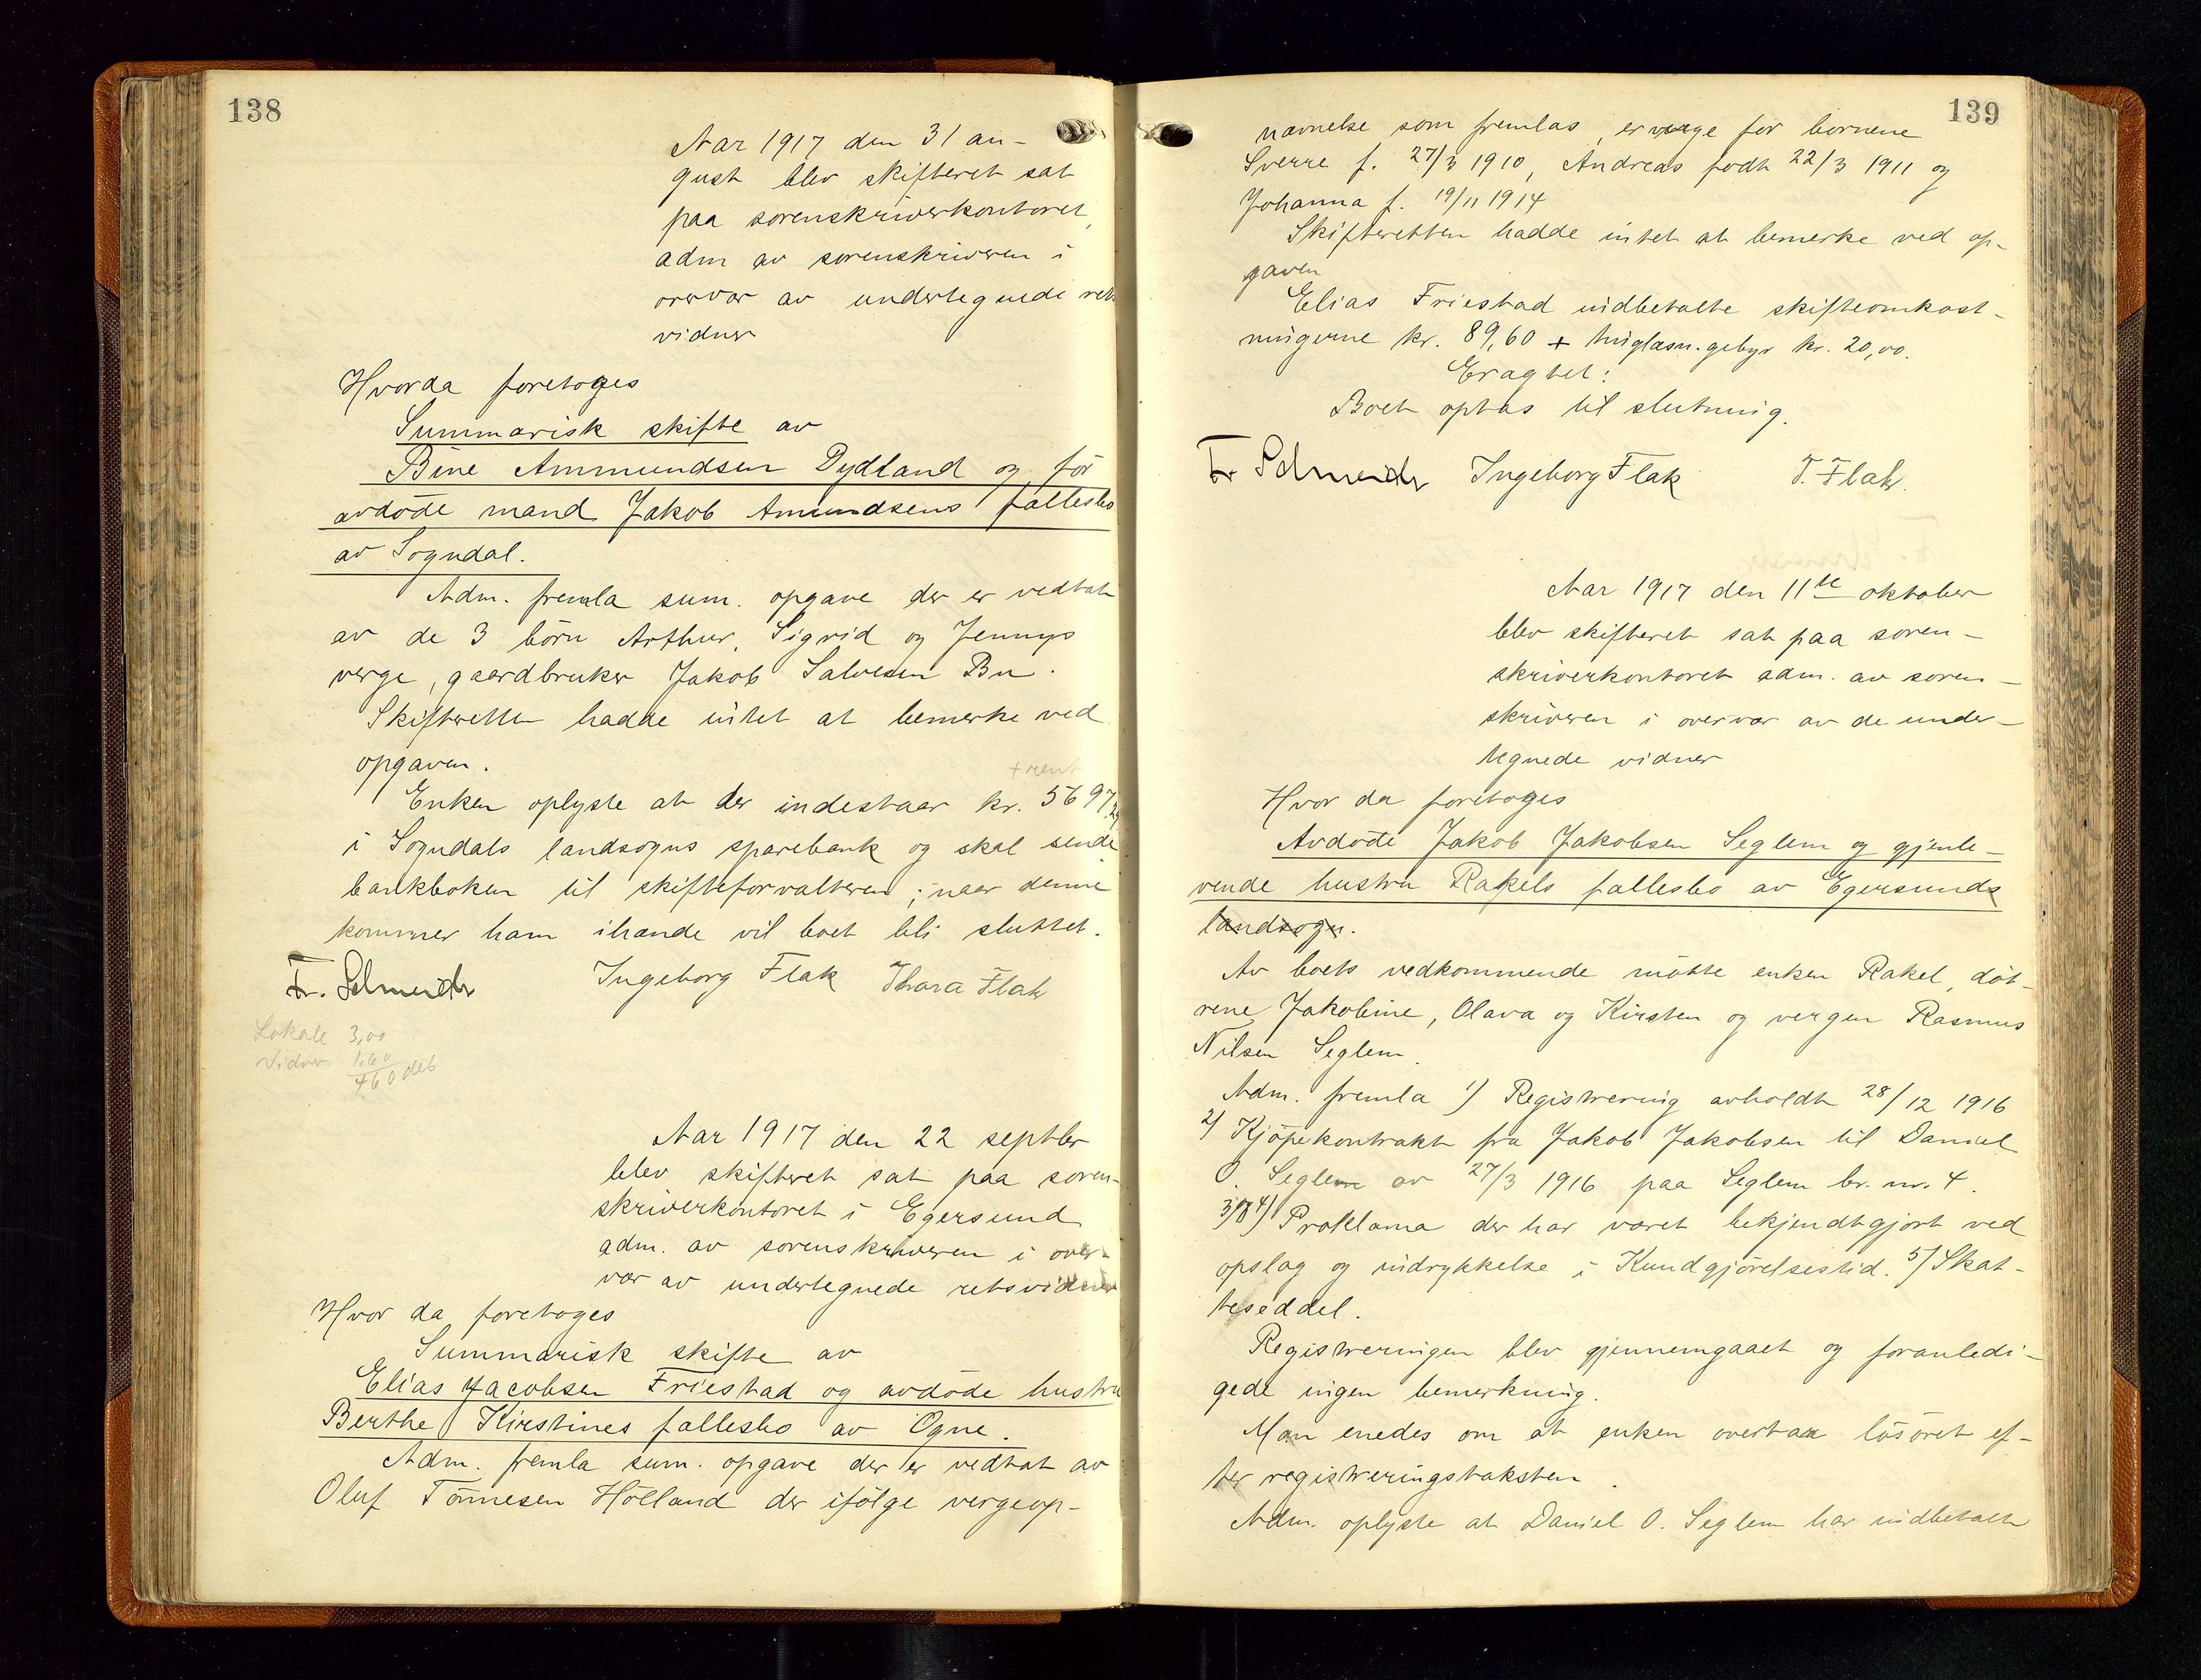 138
Aar 1917 den 31 au-
gust blev skifteret sat
paa sorenskriverkontoret,
adm av sorenskriveren i
overvær av undertegnede ret
vidner
Hvorda foretoges
Summarisk skifte av
Bine Ammundsen Dydland og før
avdøde mand Jakob Amundsens fællesbo
av Sogndal.
Adm. fremla sum. opgave der er vedtat
av de 3 börn Arthur, Sigrid og Jennys
verge, gaardbruker Jakob Salvesen Bu.
Skifteretten hadde intet at bemerke ved
opgaven.
+ rent
Enken oplyste at der indestaar kr. 5697,
i Sogndals landsogns sparebank og skal sende
bankboken til skifteforvalteren; naar denne
kommer ham ihænde vil boet bli sluttet.
Fr. Schneider Ingeborg Flak Thora Flak
Lokale 3,00
Vidner 1,60
4,60 deb
Aar 1917 den 22 septbr
blev skifteret sat paa soren-
skriverkontoret i Egersund
adm. av sorenskriveren i over-
vær av undertegnede retsvidner
Hvor da foretoges
Summarisk skifte av
Elias Jacobsen Friestad og avdøde hustru
Berthe Kirstines fællesbo av Ogne.
Adm. fremla sum. opgave der er vedtat av
Oluf Tönnesen Hölland der ifölge vergeop-
139
nævnelse som fremlas, er verge for børnene
Sverre f. 27/3 1910, Andreas født 22/3 1911 og
Johanna f. 19/11 1914
Skifteretten hadde intet at bemerke ved op-
gaven
Elias Friestad indbetalte skifteomkost-
ningerne kr. 89,60 + tinglæsn.gebyr kr. 20,00.
Eragtet:
Boet optas til slutning.
Fr Schneider Ingeborg Flak T. Flak.
Aar 1917 den 11te oktober
blev skifteret sat paa soren-
skriverkontoret adm. av soren-
skriveren i overvær av de under-
tegnede vidner
Hvor da foretoges
Avdøde Jakob Jakobsen Seglem og gjenle-
vende hustru Rakels fællesbo av Egersunds
landsogn.
Av boets vedkommende mötte enken Rakel, döt-
rene Jakobine, Olava og Kirsten og vergen Rasmus
Nilsen Seglem.
Adm. fremla 1) Registrering avholdt 28/12 1916
2) Kjöpekontrakt fra Jakob Jakobsen til Daniel
O. Seglem av 27/3 1916 paa Seglem br. nr. 4.
3) og 4) Proklama der har været bekjendtgjort ved
opslag og indrykkelse i Kundgjörelsestid. 5) Skat-
teseddel.
Registreringen blev gjennemgaaet og foranledi-
gede ingen bemerkning.
Man enedes om at enken overtar lösöret ef-
ter registreringstaksten.
Adm. oplyste at Daniel O. Seglem har indbetalt